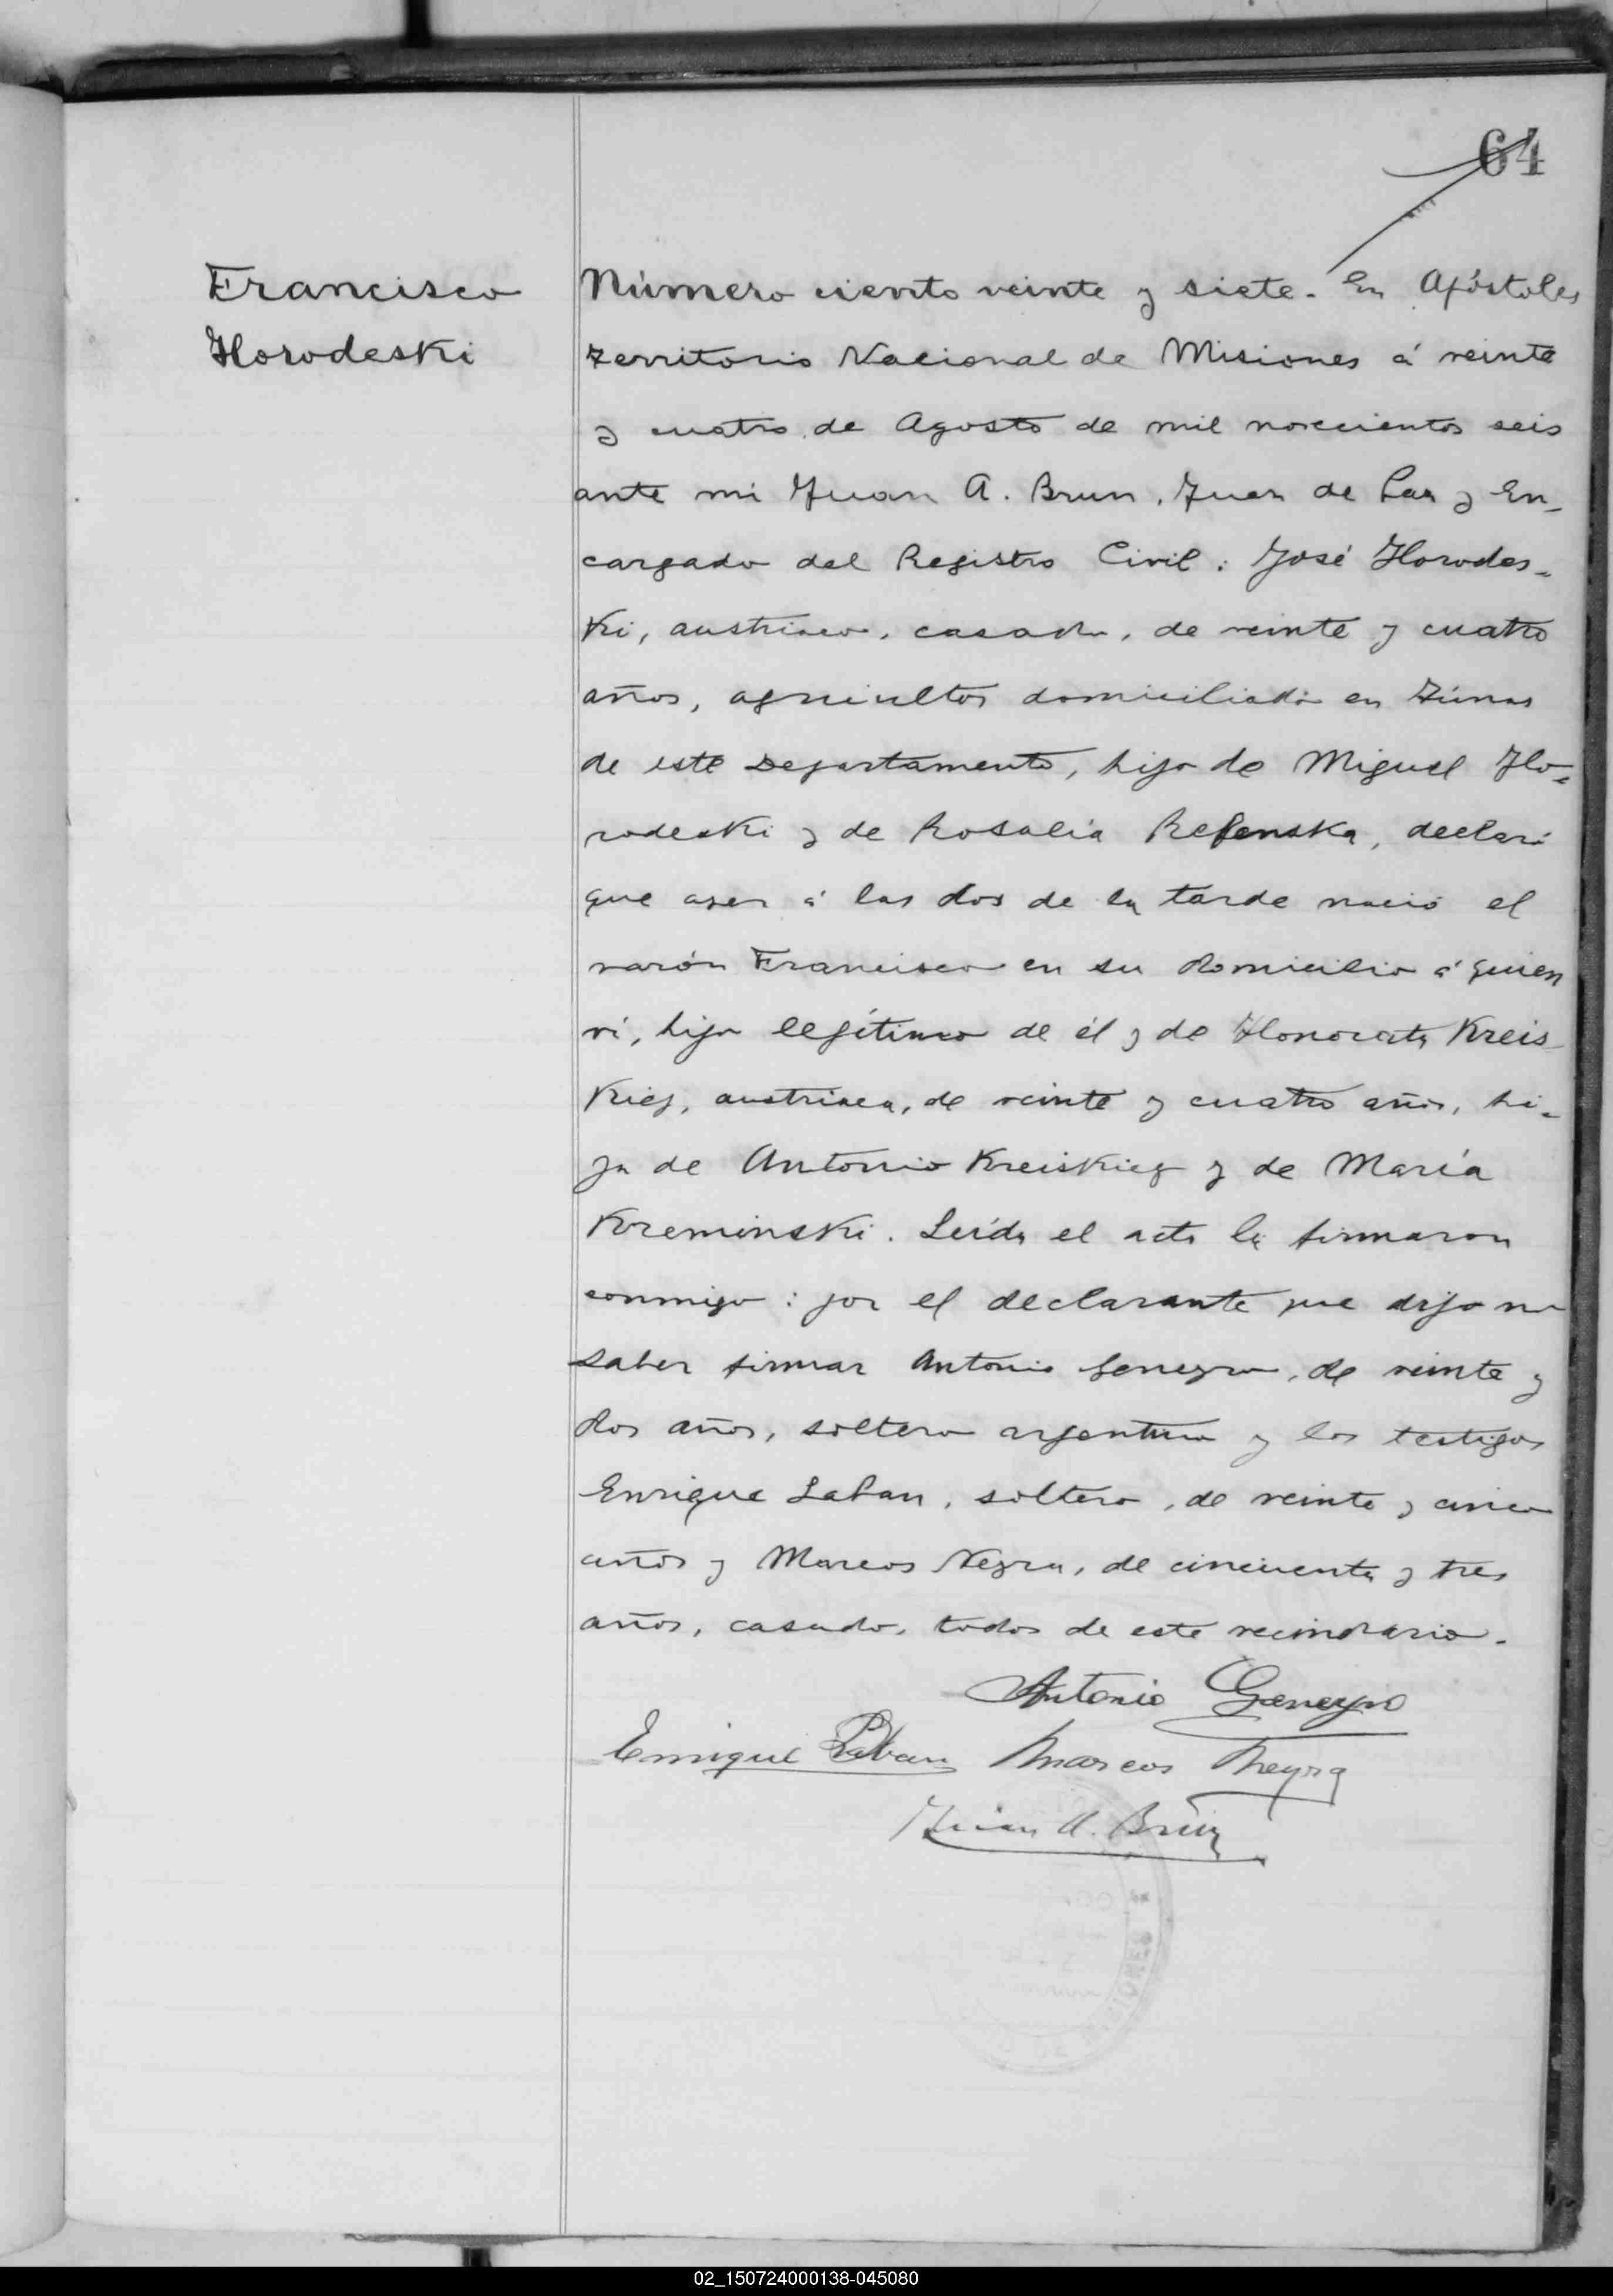 64
Francisco
Horodeski
Número ciento veinte y siete. En Apóstoles
territorio Nacional de Misiones á veinte
y cuatro de Agosto de mil novecientos seis
ante mi Juan A. Brun, Juez de Paz y En-
cargado del Registro Civil: José Horodes-
ki, austriaco, casado, de veinte y cuatro
años, agricultor domiciliado en
de este Departamento, hijo de Miguel Ho-
rodeski y de Rosalía Refenska, declaró
que ayer á las dos de la tarde nació el
varón Francisco en su domicilio á quien
ví, hijo legítimo de él y de Honorata Kreis-
kieg, austriaca, de veinte y cuatro años, hi-
ja de Antonio Kreiskieg y de María
Kreminski. Leída el acta la firmaron
conmigo: por el declarante que dijo no
saber firmar Antonio Geneyro, de veinte y
dos años, soltero argentino y los testigos
Enrique Laban, soltero, de veinte y cinco
años y Marcos Neyra, de cincuenta y tres
años, casado, todos de este vecindario.
Antonio Geneyro
Enrique Laban Marcos Neyra
Juan A. Brun
02_150724000138-045080